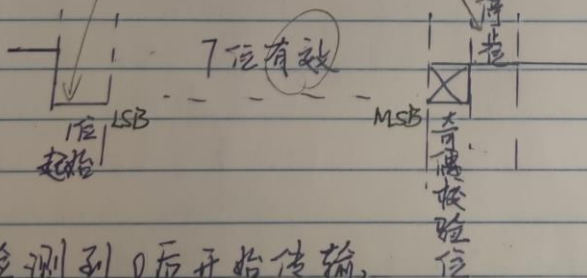 停止位
7位有效
LSB
MSB
1位
起始
奇偶校验位
检测到0后开始传输,